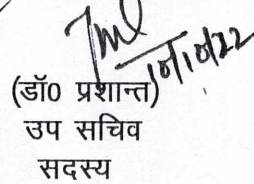 10/10/22
(डॉ0 प्रशान्त)
उप सचिव
सदस्य